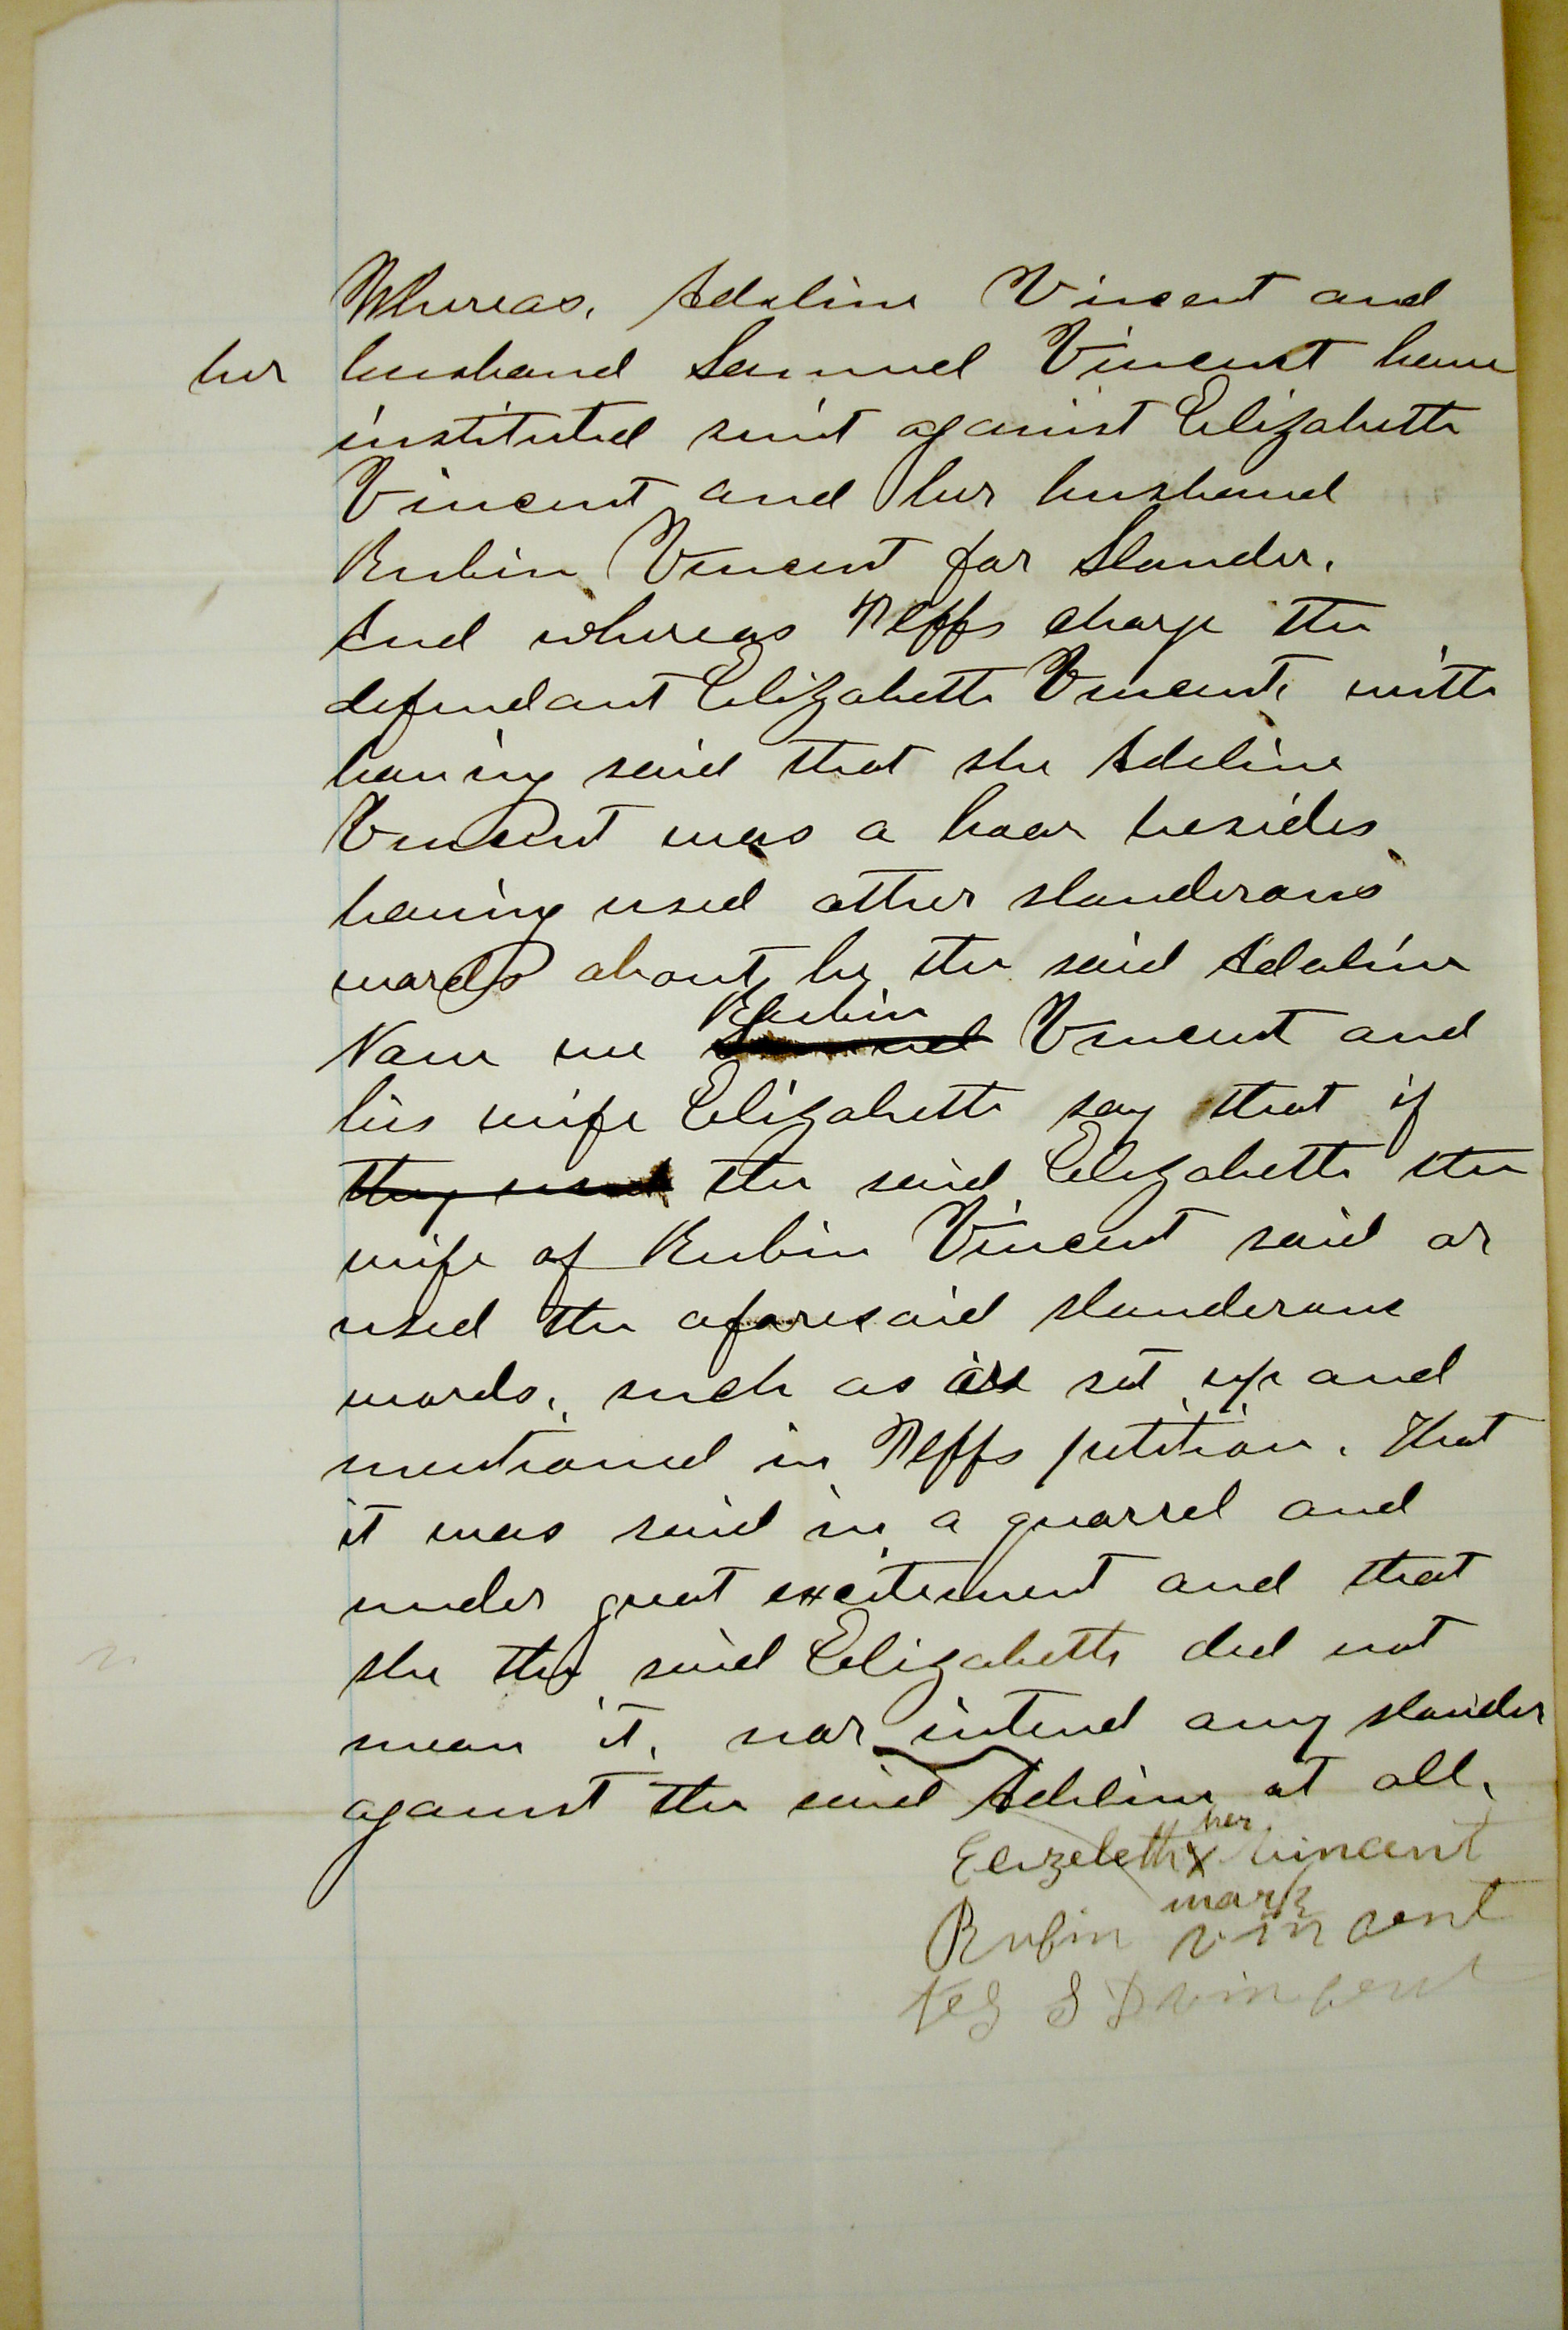 Whereas, Adaline Vincent and
her husband Samuel Vincent have
instituted suit against Elizabeth
Vincent and her husband
Rubin Vincent for Slander.
And whereas Plffs charge the
defendant Elizabeth Vincent with
having said that she Adeline
Vincent was a hoar besides
having used other slanderous
words about, by the said Adaline
Now we Rubin Vincent and
his wife Elizabeth say that if
they used the said Elizabeth the
wife of Rubin Vincent said or
used the aforesaid slanderous
words, such as are set up and
mentioned in Plffs petition. That
it was said in a quarrel and
under great excitement and that
she the said Elizabeth did not
mean it, nor intend any slander
against the said Adeline at all.
her
Elizebeth X Vincent
mark
Rubin vincent